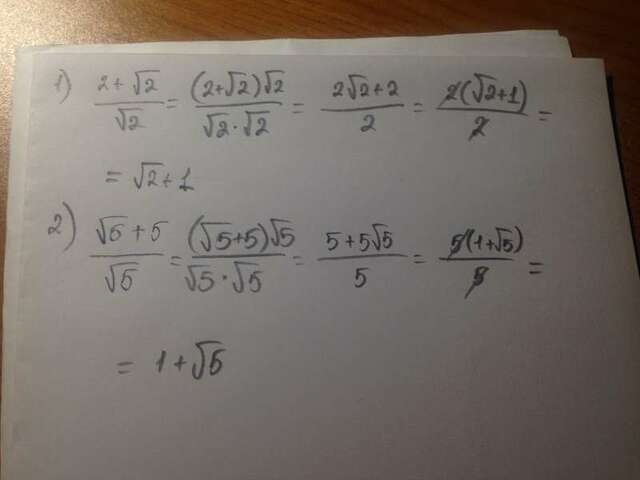 1) (2+√2)/√2 = ((2+√2)√2)/(√2·√2) = (2√2+2)/2 = (2(√2+1))/2 =
= √2+1
2) (√5+5)/√5 = ((√5+5)√5)/(√5·√5) = (5+5√5)/5 = (5(1+√5))/5 =
= 1+√5